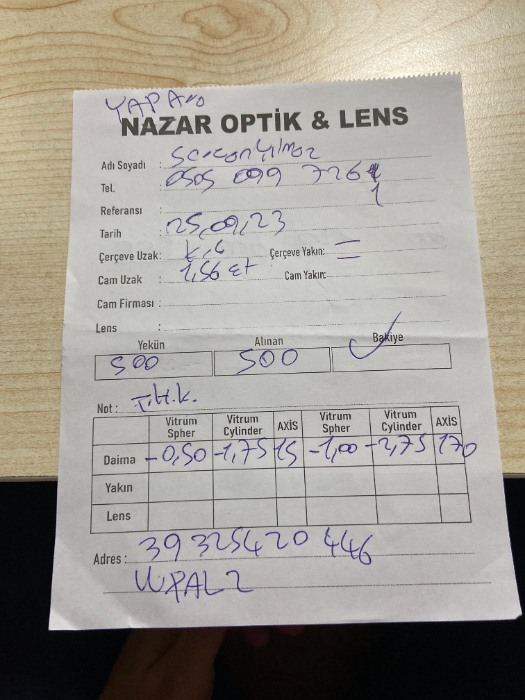 YAPAN
NAZAR OPTİK & LENS
Adı Soyadı : Sercan Yılmaz
Tel. : 0505 099 726 1
Referansı :
Tarih : 25,09,23
Çerçeve Uzak: Çerçeve Yakın: =
Cam Uzak : 1,56 Cam Yakın:
Cam Firması :
Lens :
Yekün Alınan Bakiye
500 500 ✓
Not : T.H.K.
Vitrum Spher Vitrum Cylinder AXİS Vitrum Spher Vitrum Cylinder AXİS
Daima -0,50 -1,75 15 -1,00 -2,75 170
Yakın
Lens
Adres : 39325420446